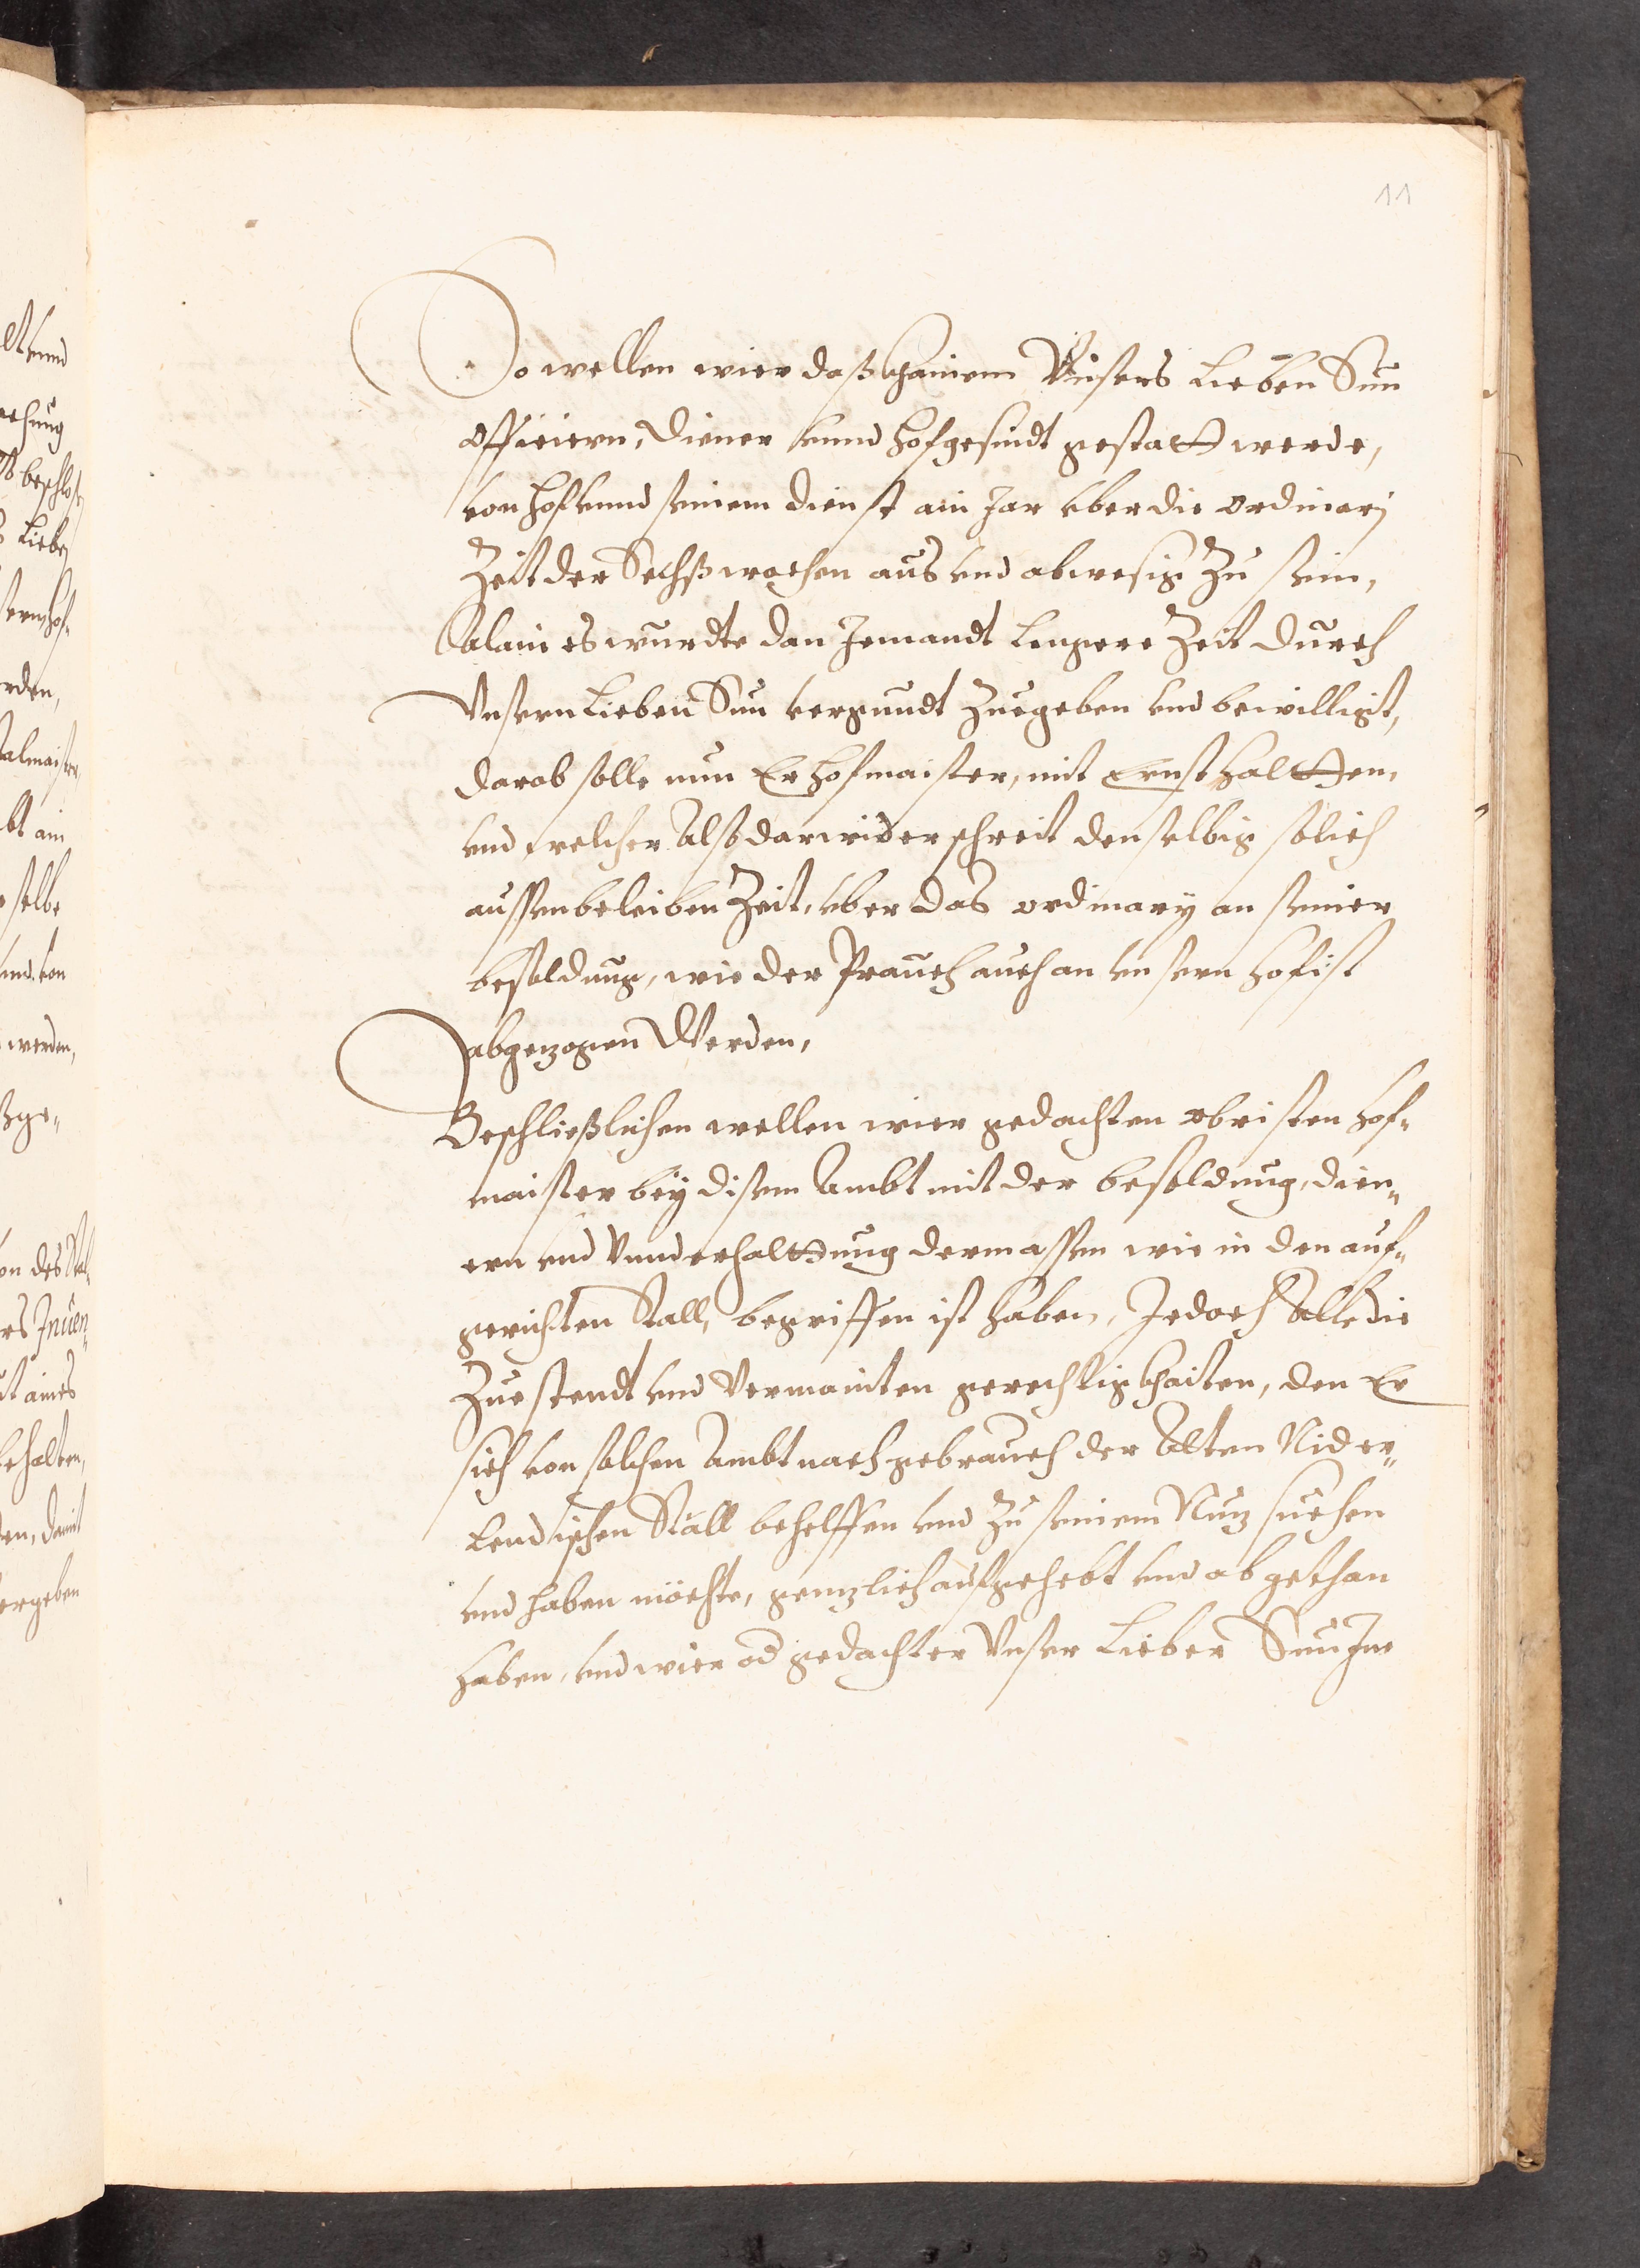 11
So wellen wier daß khainem Unsers Lieben Sun
officiern, diener vnnd hofgesindt gestatt werde,
von hof vnnd seinem dienst ain Jar vber die ordinarj
Zeit der Sechßwochen aus vnd abwesig zu sein,
Alain es wurdte dan Jemandt lengere Zeit durch
Vnsern Lieben Sun vergundt zuegeben vnd bewilligt,
darob solle nun Er hofmaister, mit Ernst haltten,
vnd welcher Alß darwider schreit denselbig solich
aussenbeleiben Zeit, vber das ordinary an seiner
besoldung, wie der Prauch auch an vnsern hof ist
abgezogen Werden,
Beschließlichen wellen wier gedachten obristen hof¬
maister bey disem Ambt mit der besoldung, dien¬
ern vnd Vnnderhalttung dermassen wie in den auf¬
gerichten Stall, begriffen ist haben, Jedoch Alle die
Zuestendt vnd Vermainten gerechtigkhaiten, den Er
sich von solchen Ambt nach gebrauch der Alten Nider¬
lendischen Ställ behelffen vnd zu seinem Nuz suechen
vnd haben möchte, genzlich aufgehebt vnd abgethan
haben, vnd wier od gedachter Vnser Lieber Sun Ine